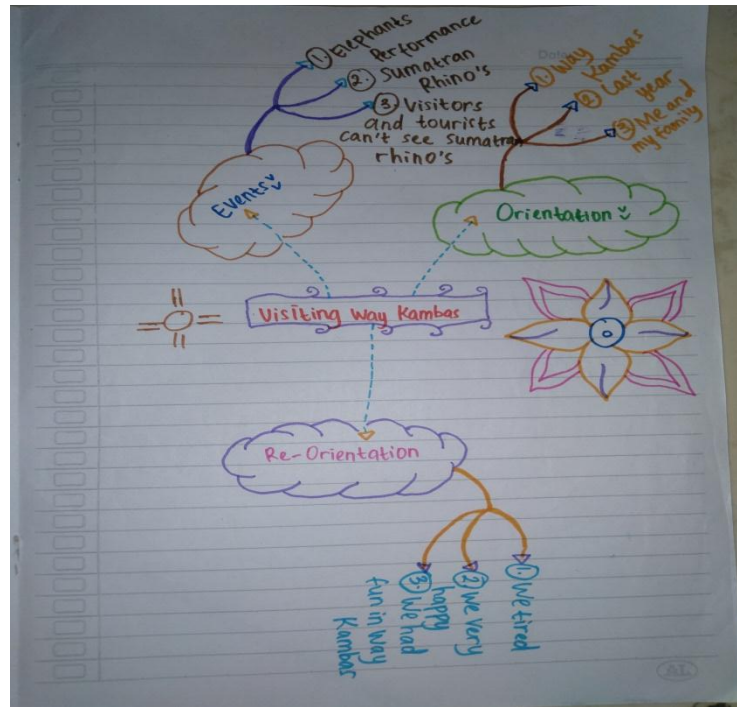 ① Elephants
Performance
②. Sumatran
Rhino's
③ Visitors
and tourists
can't see sumatran
rhino's
Events
① Way
Kambas
② Last
year
③ Me and
my family
Orientation
Visiting Way Kambas
Re-Orientation
①. We tired
② We very
happy
③. We had
fun in way
Kambas
AL